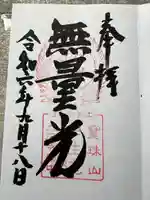 奉拝
無量光
令和六年九月十八日